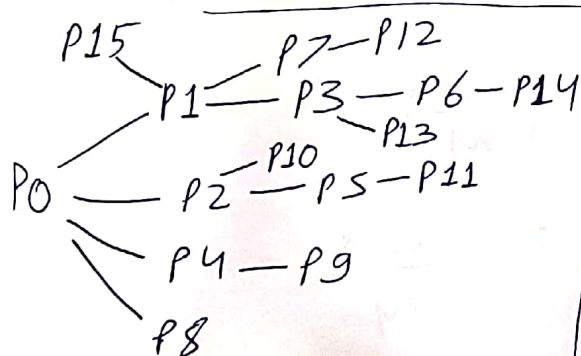 P15
P7 P12
P1 P3 P6 P14
P13
P10
P0 P2 P5 P11
P4 P9
P8